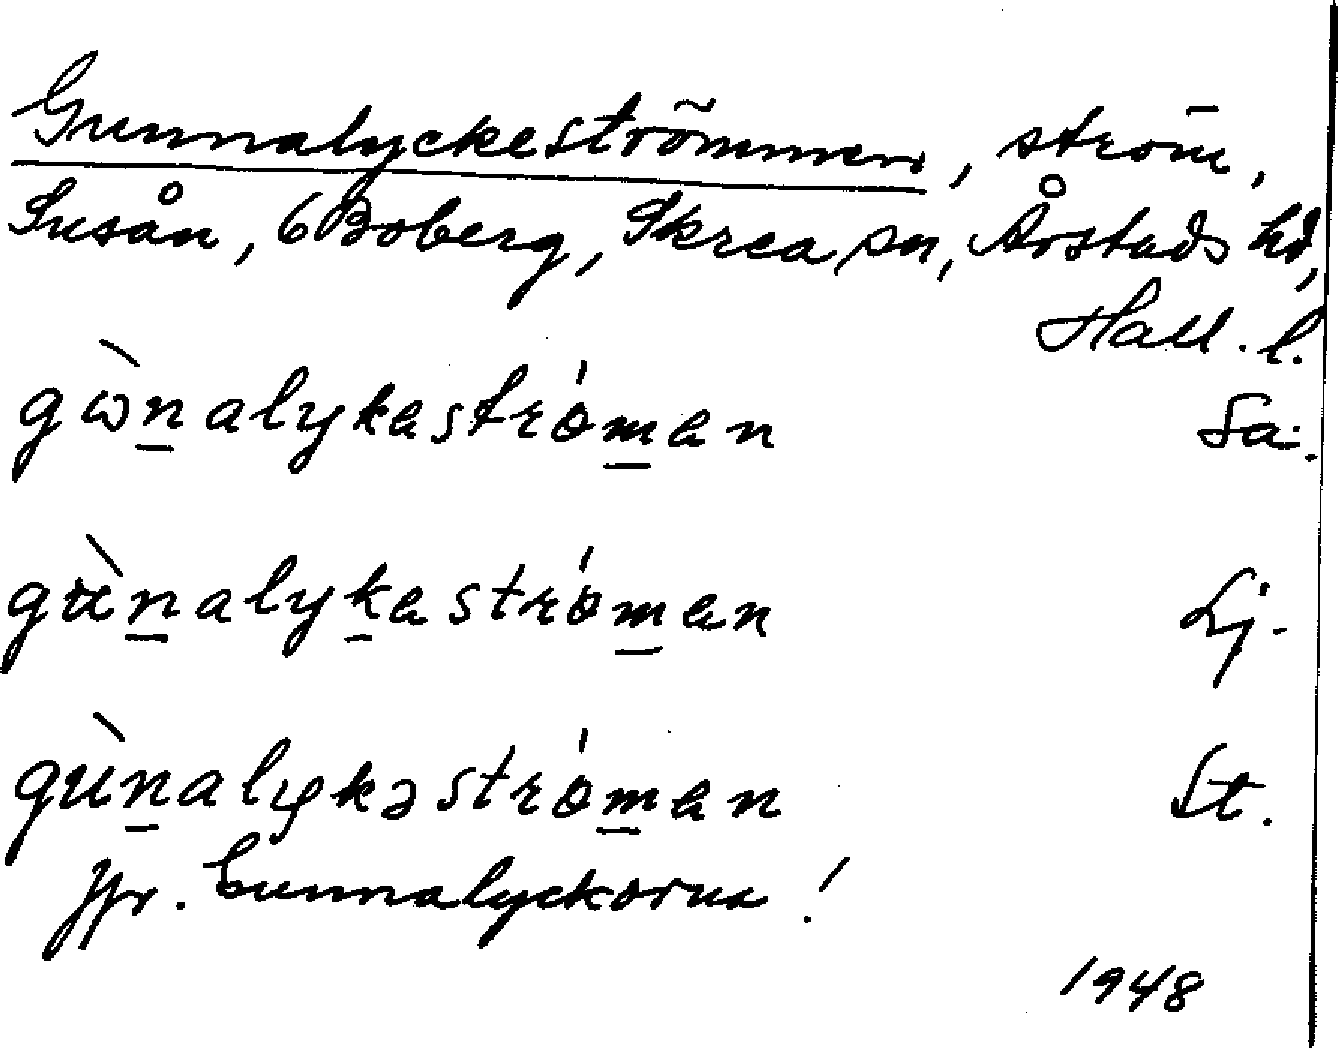 Gunnalyckeströmmen, ström,
Susån, 6 Boberg, Skrea sn, Årstads hd,
Hall. l.
gѡ̀n̲alykaströ́m̲an Sa.
gùn̲alyk̲aströ́m̲an Lj.
gùn̲alykəströ́m̲an St.
Jfr. Gunnalyckorna!
1948